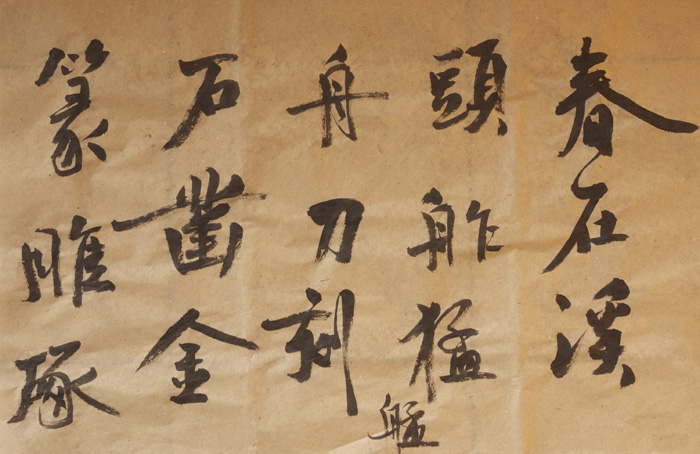 春在溪
頭舴猛
艋
舟刀刻
石凿金
篆雕琢